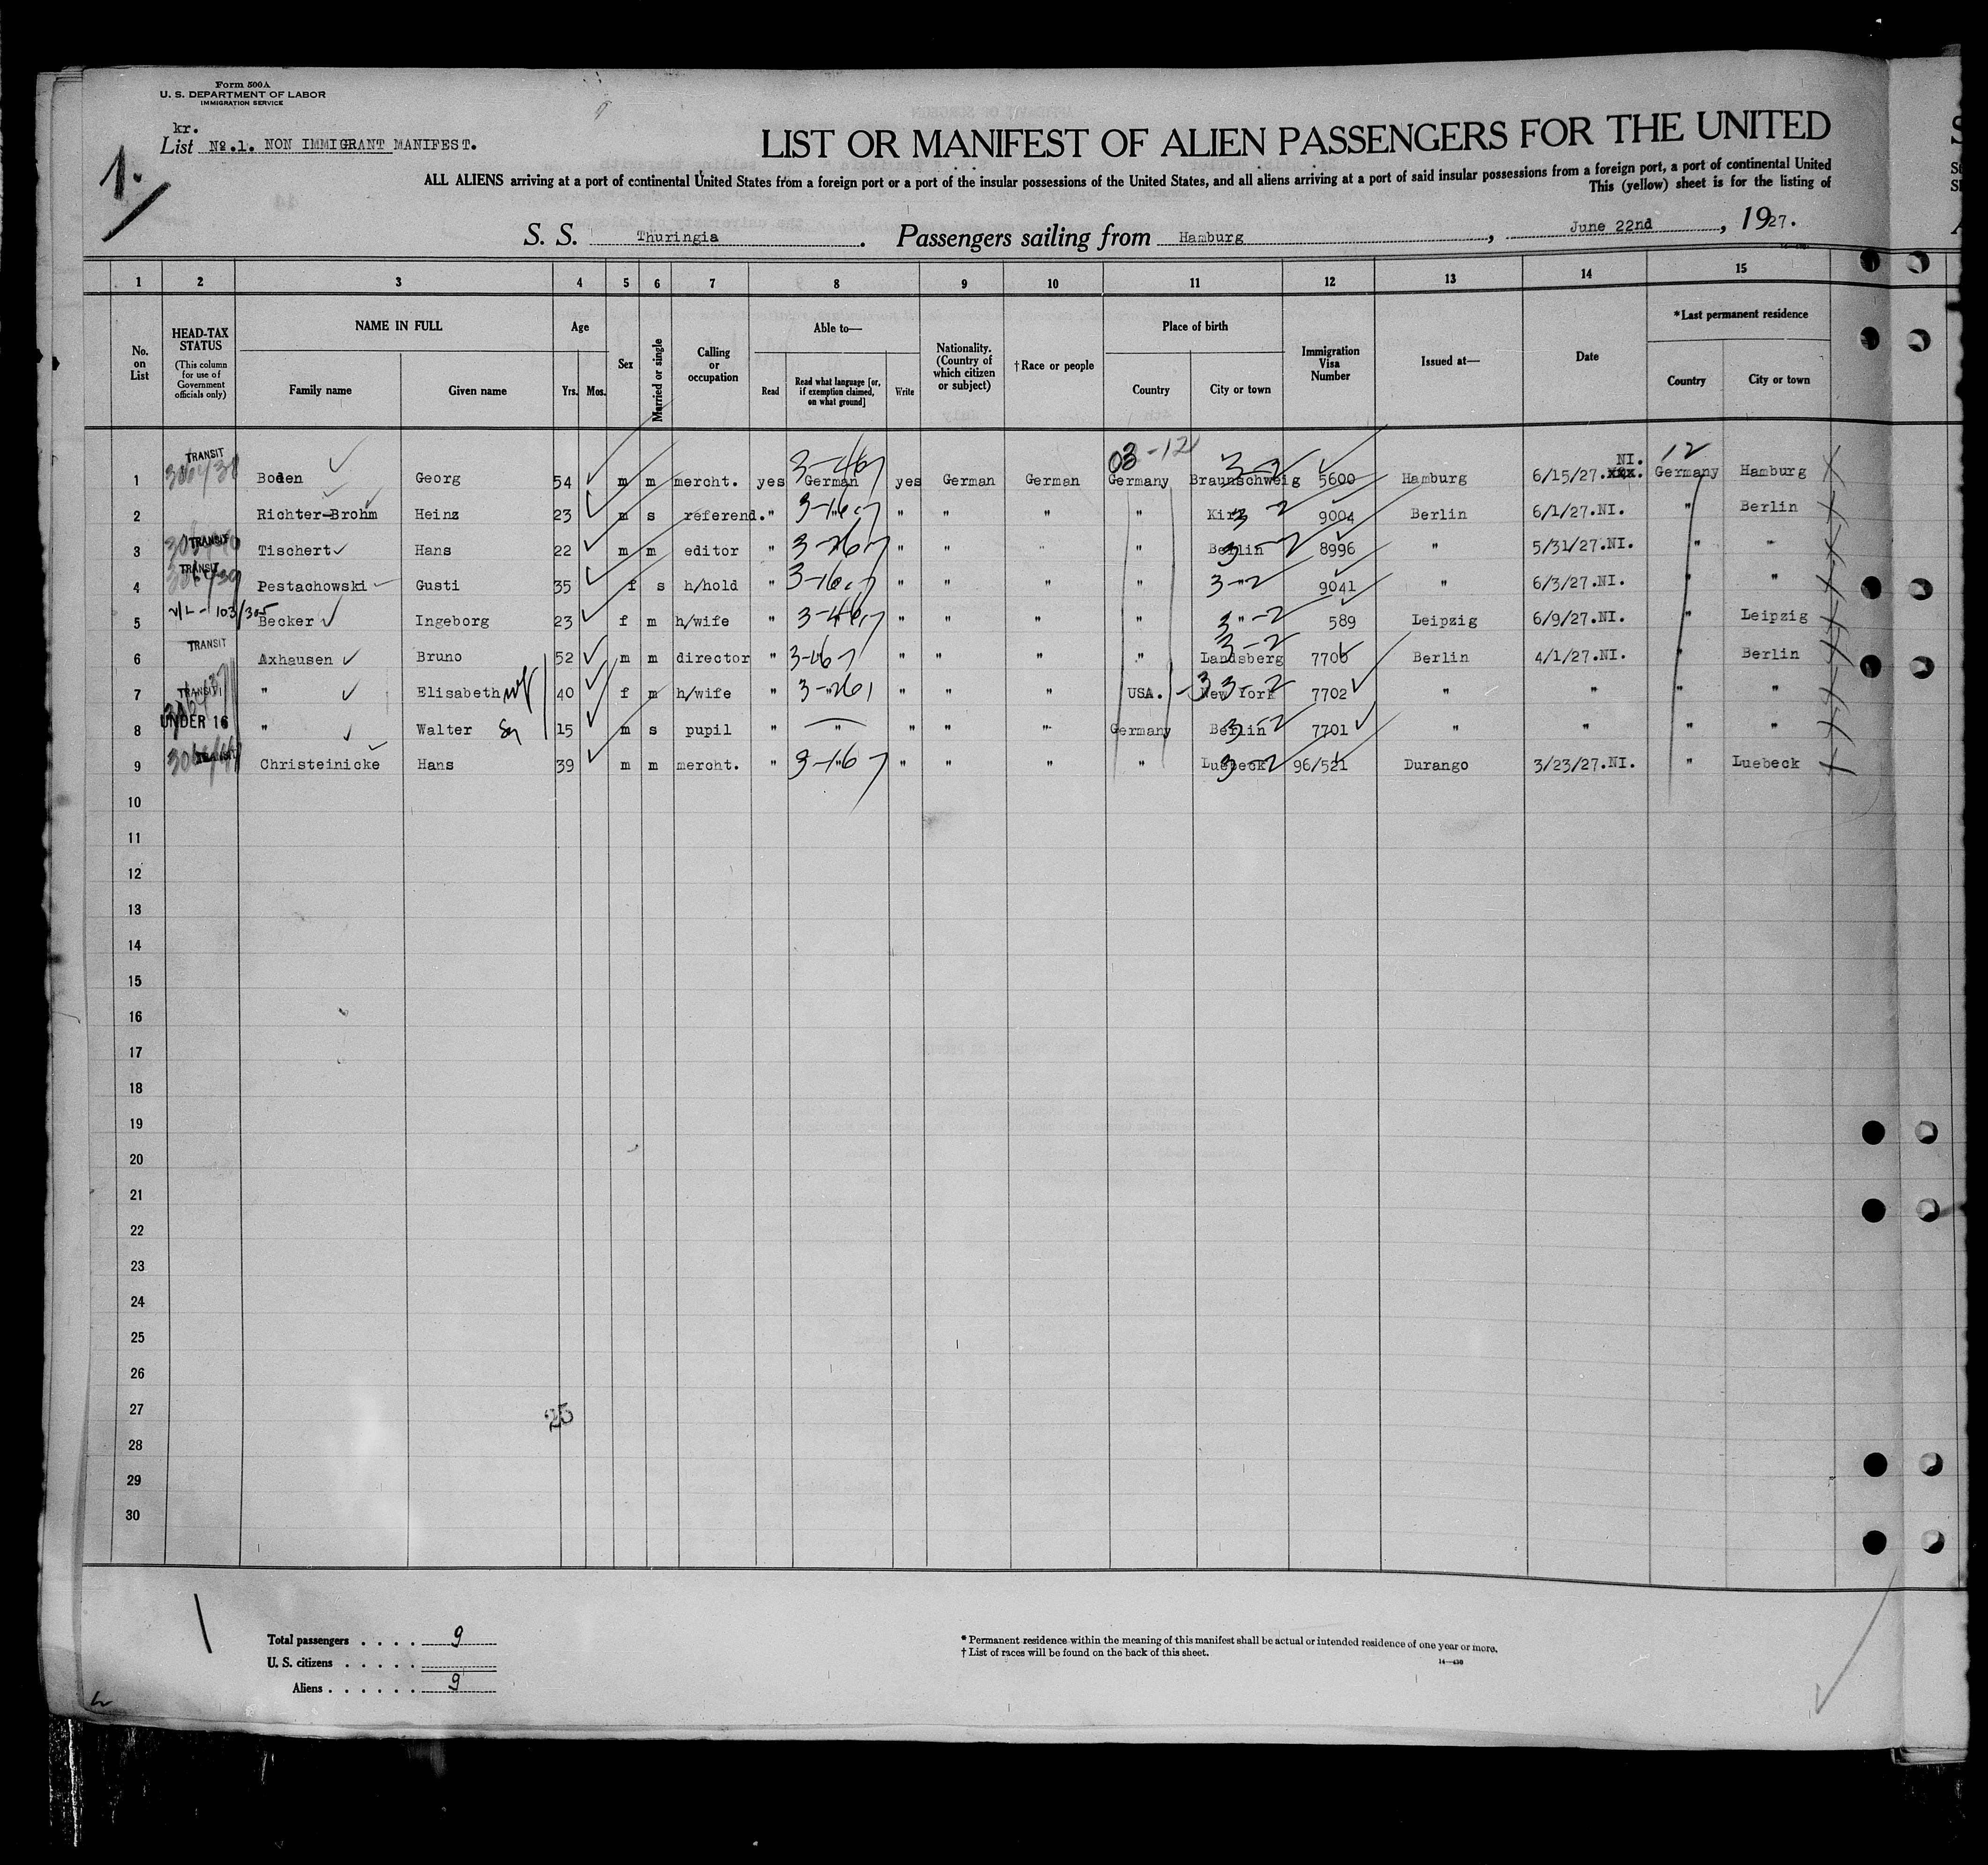 Form 500A
U. S. DEPARTMENT OF LABOR
IMMIGRATION SERVICE
kr.
List No.1. NON IMMIGRANT MANIFEST.
1.
LIST OR MANIFEST OF ALIEN PASSENGERS FOR THE UNITED
ALL ALIENS arriving at a port of continental United States from a foreign port or a port of the insular possessions of the United States, and all aliens arriving at a port of said insular possessions from a foreign port, a port of continental United
This (yellow) sheet is for the listing of
S. S. Thuringia. Passengers sailing from Hamburg, June 22nd, 1927.
1 2 3 4 5 6 7 8 9 10 11 12 13 14 15
No. on List
HEAD-TAX STATUS (This column for use of Government officials only)
NAME IN FULL Family name Given name
Age Yrs. Mos.
Sex
Married or single
Calling or occupation
Able to— Read Read what language [or, if exemption claimed, on what ground] Write
Nationality. (Country of which citizen or subject)
†Race or people
Place of birth Country City or town
Immigration Visa Number
Issued at—
Date
*Last permanent residence Country City or town
03-12 12
1 TRANSIT Boden Georg 54 m m mercht. yes German yes German German Germany Braunschweig 3-2 5600 Hamburg 6/15/27. NI. xxx. Germany Hamburg
2 Richter-Brohm Heinz 23 m s referend. " " " " " " 3-2 9004 Berlin 6/1/27.NI. " Berlin
3 TRANSIT Tischert Hans 22 m m editor " " " " " Berlin 3-2 8996 " 5/31/27.NI. " "
4 TRANSIT Pestachowski Gusti 35 f s h/hold " " " " " " 3-2 9041 " 6/3/27.NI. " "
5 Becker Ingeborg 23 f m h/wife " " " " " " 3-2 589 Leipzig 6/9/27.NI. " Leipzig
6 TRANSIT Axhausen Bruno 52 m m director " " " " " Landsberg 3-2 7706 Berlin 4/1/27.NI. " Berlin
7 TRANSIT " Elisabeth wf 40 f m h/wife " " " " " USA. New York 3-2 7702 " " " "
8 UNDER 16 " Walter 15 m s pupil " " " " " Germany Berlin 3-2 7701 " " " "
9 TRANSIT Christeinicke Hans 39 m m mercht. " " " " " " Luebeck 3-2 96/521 Durango 3/23/27.NI. " Luebeck
10
11
12
13
14
15
16
17
18
19
20
21
22
23
24
25
26
27
25
28
29
30
Total passengers . . . . 9
U. S. citizens . . . . .
Aliens . . . . . . 9
* Permanent residence within the meaning of this manifest shall be actual or intended residence of one year or more.
† List of races will be found on the back of this sheet.
14—430